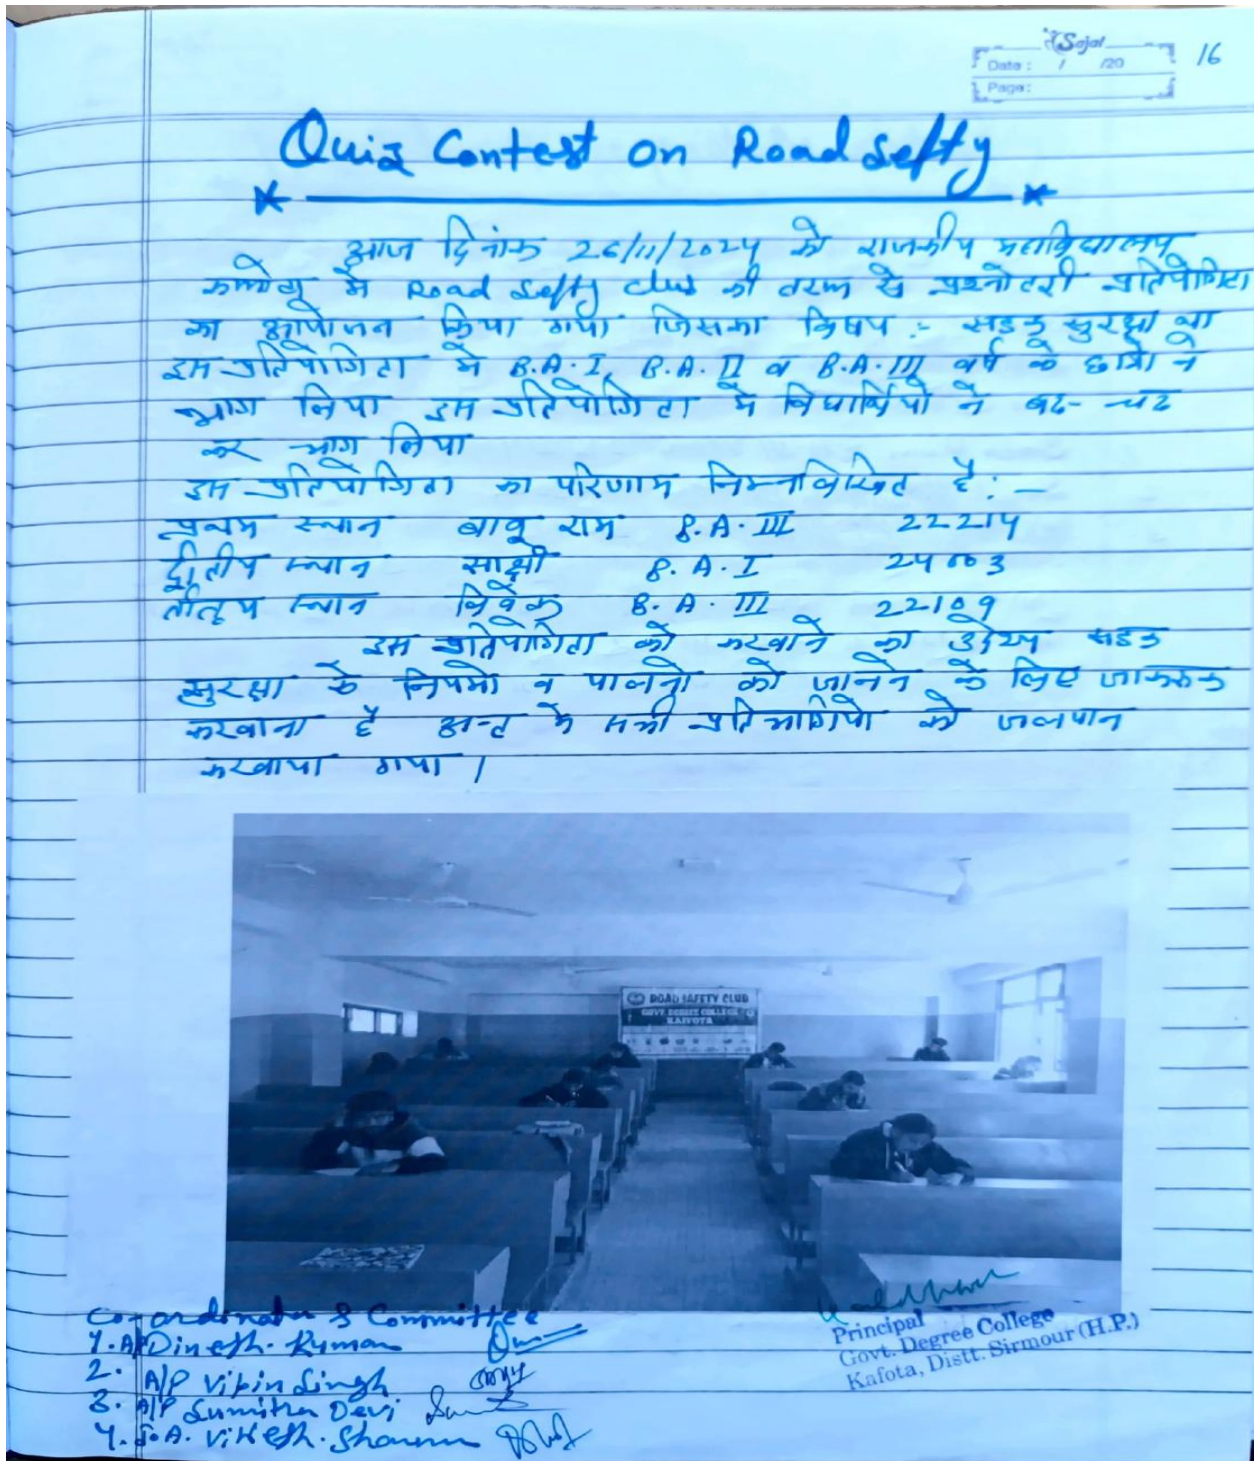 Sajal
Date : / /20
Page:
16
Quiz Contest on Road Sefty
आज दिनांक 26/11/2024 को राजकीय महाविद्यालय
में Road Sefty club की तरफ से प्रश्नोतरी प्रतियोगिता
का आयोजन किया गया जिसका विषय :- सड़क सुरक्षा था
इस प्रतियोगिता में B.A.I, B.A.II व B.A.III वर्ष के छात्रो ने
भाग लिया इस प्रतियोगिता में विधार्थियो ने बढ़-चढ
कर भाग लिया
इस प्रतियोगिता का परिणाम निम्नलिखित है:-
प्रथम स्थान बाबू राम B.A.III 22214
द्वितीय स्थान साक्षी B.A.I 24003
स्थान विवेक B.A.III 22109
इस प्रतियोगिता को करवाने का उदेश्य सडक
सुरक्षा के नियमो व पालनो को जानने के लिए जागरूक
करवाना है अन्त मे सभी प्रतिभागियो को जलपान
करवाया गया।
ROAD SAFETY CLUB
GOVT. DEGREE COLLEGE
KAFOTA
Co-ordinator & Committee
1. A/P Dinesh. Kumar
2. A/P Vipin Singh
3. A/P Sumitra Devi
4. S.A. Vikesh. Sharma
Principal
Govt. Degree College
Kafota, Distt. Sirmour (H.P.)